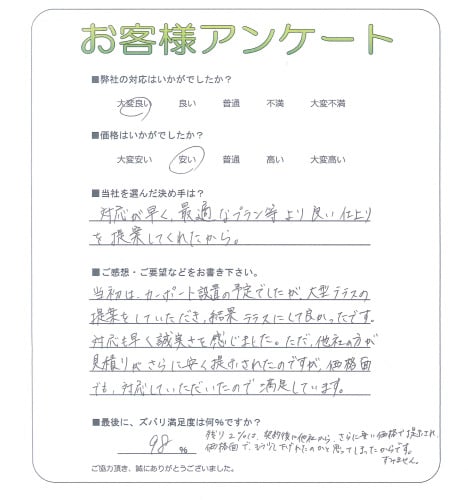 お客様アンケート
■弊社の対応はいかがでしたか？
大変良い 良い 普通 不満 大変不満
■価格はいかがでしたか？
大変安い 安い 普通 高い 大変高い
■当社を選んだ決め手は？
対応が早く、最適なプラン等より良い仕上り
を提案してくれたから。
■ご感想・ご要望などをお書き下さい。
当初は、カーポート設置の予定でしたが、大型テラスの
提案をしていただき、結果テラスにして良かったです。
対応も早く誠実さを感じました。ただ、他社の方が
見積りがさらに安く提示されたのですが、価格面
でも、対応していただいたので満足しています。
■最後に、ズバリ満足度は何%ですか？
98 %
残り2%は、契約後に他社から、さらに安い価格で提示され、
価格面で、もう少し下げれたのかと思ってしまったからです。
すみません。
ご協力頂き、誠にありがとうございました。